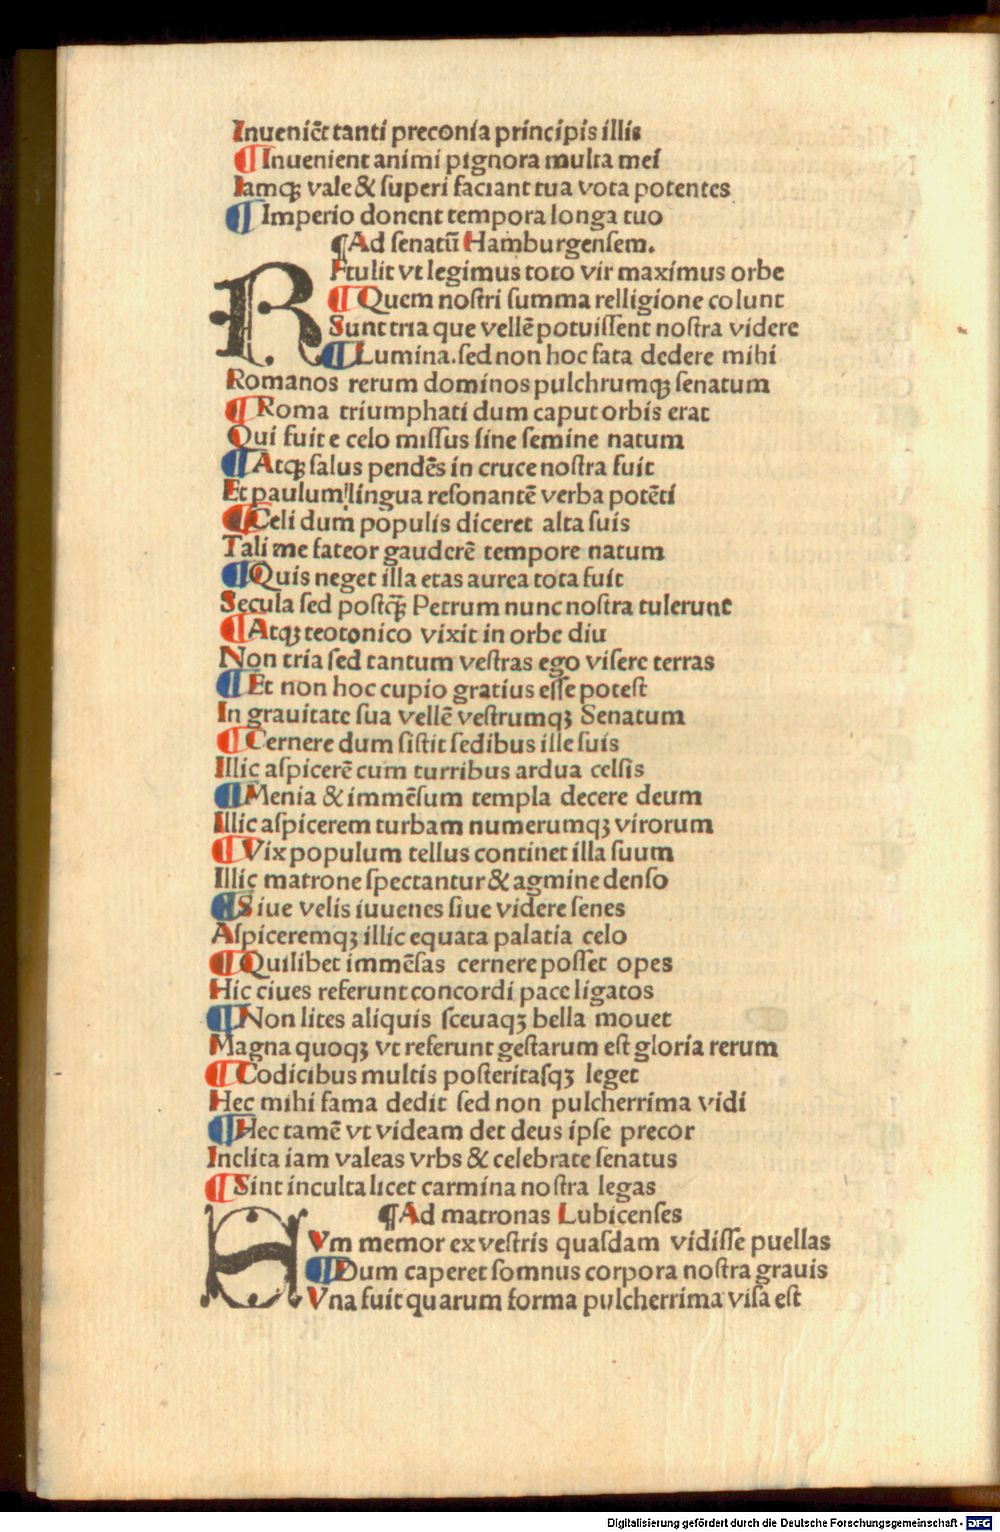 Inueniēt tanti preconia principis illis
¶ Inuenient animi pignora multa mei
Iamqꝫ vale & superi faciant tua vota potentes
¶ Imperio donent tempora longa tuo
¶ Ad senatū Hamburgensem.
REtulit vt legimus toto vir maximus orbe
¶ Quem nostri summa relligione colunt
Sunt tria que vellē potuissent nostra videre
¶ Lumina. sed non hoc fata dedere mihi
Romanos rerum dominos pulchrumqꝫ senatum
¶ Roma triumphati dum caput orbis erat
Qui fuit e celo missus sine semine natum
¶ Atqꝫ salus pendēs in cruce nostra fuit
Et paulum lingua resonantē verba potēti
¶ Celi dum populis diceret alta suis
Tali me fateor gauderē tempore natum
¶ Quis neget illa etas aurea tota fuit
Secula sed postqꝫ̄ Petrum nunc nostra tulerunt
¶ Atqꝫ teotonico vixit in orbe diu
Non tria sed tantum vestras ego visere terras
¶ Et non hoc cupio gratius esse potest
In grauitate sua vellē vestrumqꝫ Senatum
¶ Cernere dum sistit sedibus ille suis
Illic aspicerē cum turribus ardua celsis
¶ Menia & immēsum templa decere deum
Illic aspicerem turbam numerumqꝫ virorum
¶ Vix populum tellus continet illa suum
Illic matrone spectantur & agmine denso
¶ Siue velis iuuenes siue videre senes
Aspiceremqꝫ illic equata palatia celo
¶ Quilibet immēsas cernere posset opes
Hic ciues referunt concordi pace ligatos
¶ Non lites aliquis sceuaqꝫ bella mouet
Magna quoqꝫ vt referunt gestarum est gloria rerum
¶ Codicibus multis posteritasqꝫ leget
Hec mihi fama dedit sed non pulcherrima vidi
¶ Hec tamē vt videam det deus ipse precor
Inclita iam valeas vrbs & celebrate senatus
¶ Sint inculta licet carmina nostra legas
¶ Ad matronas Lubicenses
SVm memor ex vestris quasdam vidisse puellas
¶ Dum caperet somnus corpora nostra grauis
Vna fuit quarum forma pulcherrima visa est
Digitalisierung gefördert durch die Deutsche Forschungsgemeinschaft - DFG